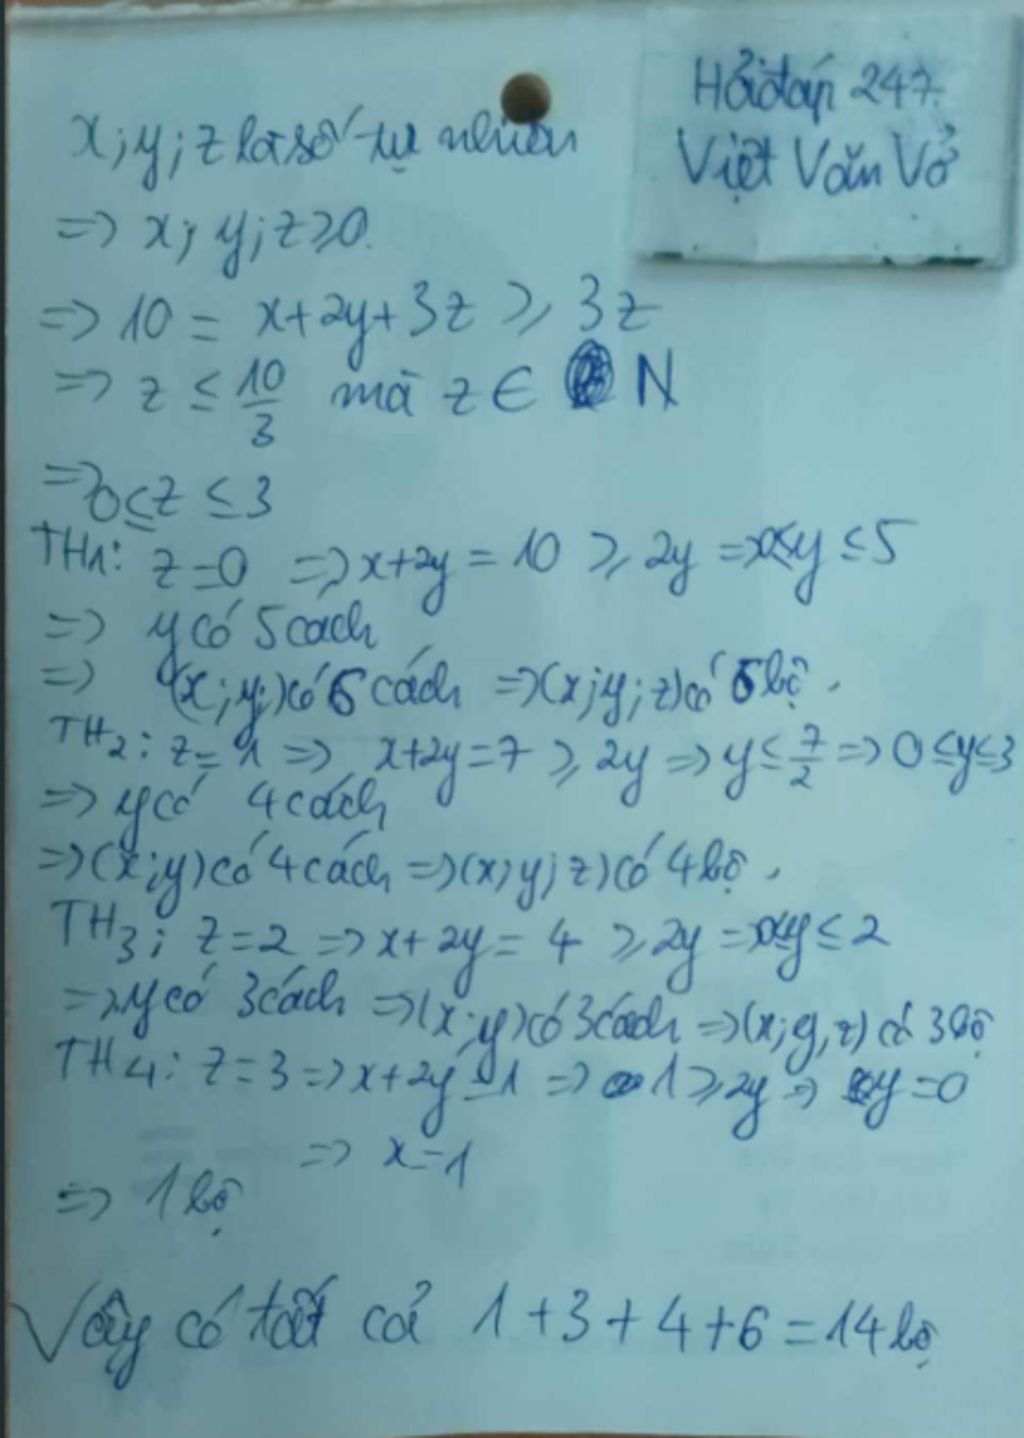 Hỏi đáp 247.
Việt Văn Vở
x; y; z là số tự nhiên
=> x; y; z ≥ 0.
=> 10 = x + 2y + 3z ≥ 3z
=> z ≤ 10/3 mà z ∈ N
=> 0 ≤ z ≤ 3
TH1: z = 0 => x + 2y = 10 ≥ 2y => 0 ≤ y ≤ 5
=> y có 5 cách
=> (x; y) có 6 cách => (x; y; z) có 6 bộ.
TH2: z = 1 => x + 2y = 7 ≥ 2y => y ≤ 7/2 => 0 ≤ y ≤ 3
=> y có 4 cách
=> (x; y) có 4 cách => (x; y; z) có 4 bộ.
TH3: z = 2 => x + 2y = 4 ≥ 2y => 0 ≤ y ≤ 2
=> y có 3 cách => (x; y) có 3 cách => (x; y, z) có 3 bộ
TH4: z = 3 => x + 2y = 1 => 1 ≥ 2y => y = 0
=> x = 1
=> 1 bộ
Vậy có tất cả 1 + 3 + 4 + 6 = 14 bộ